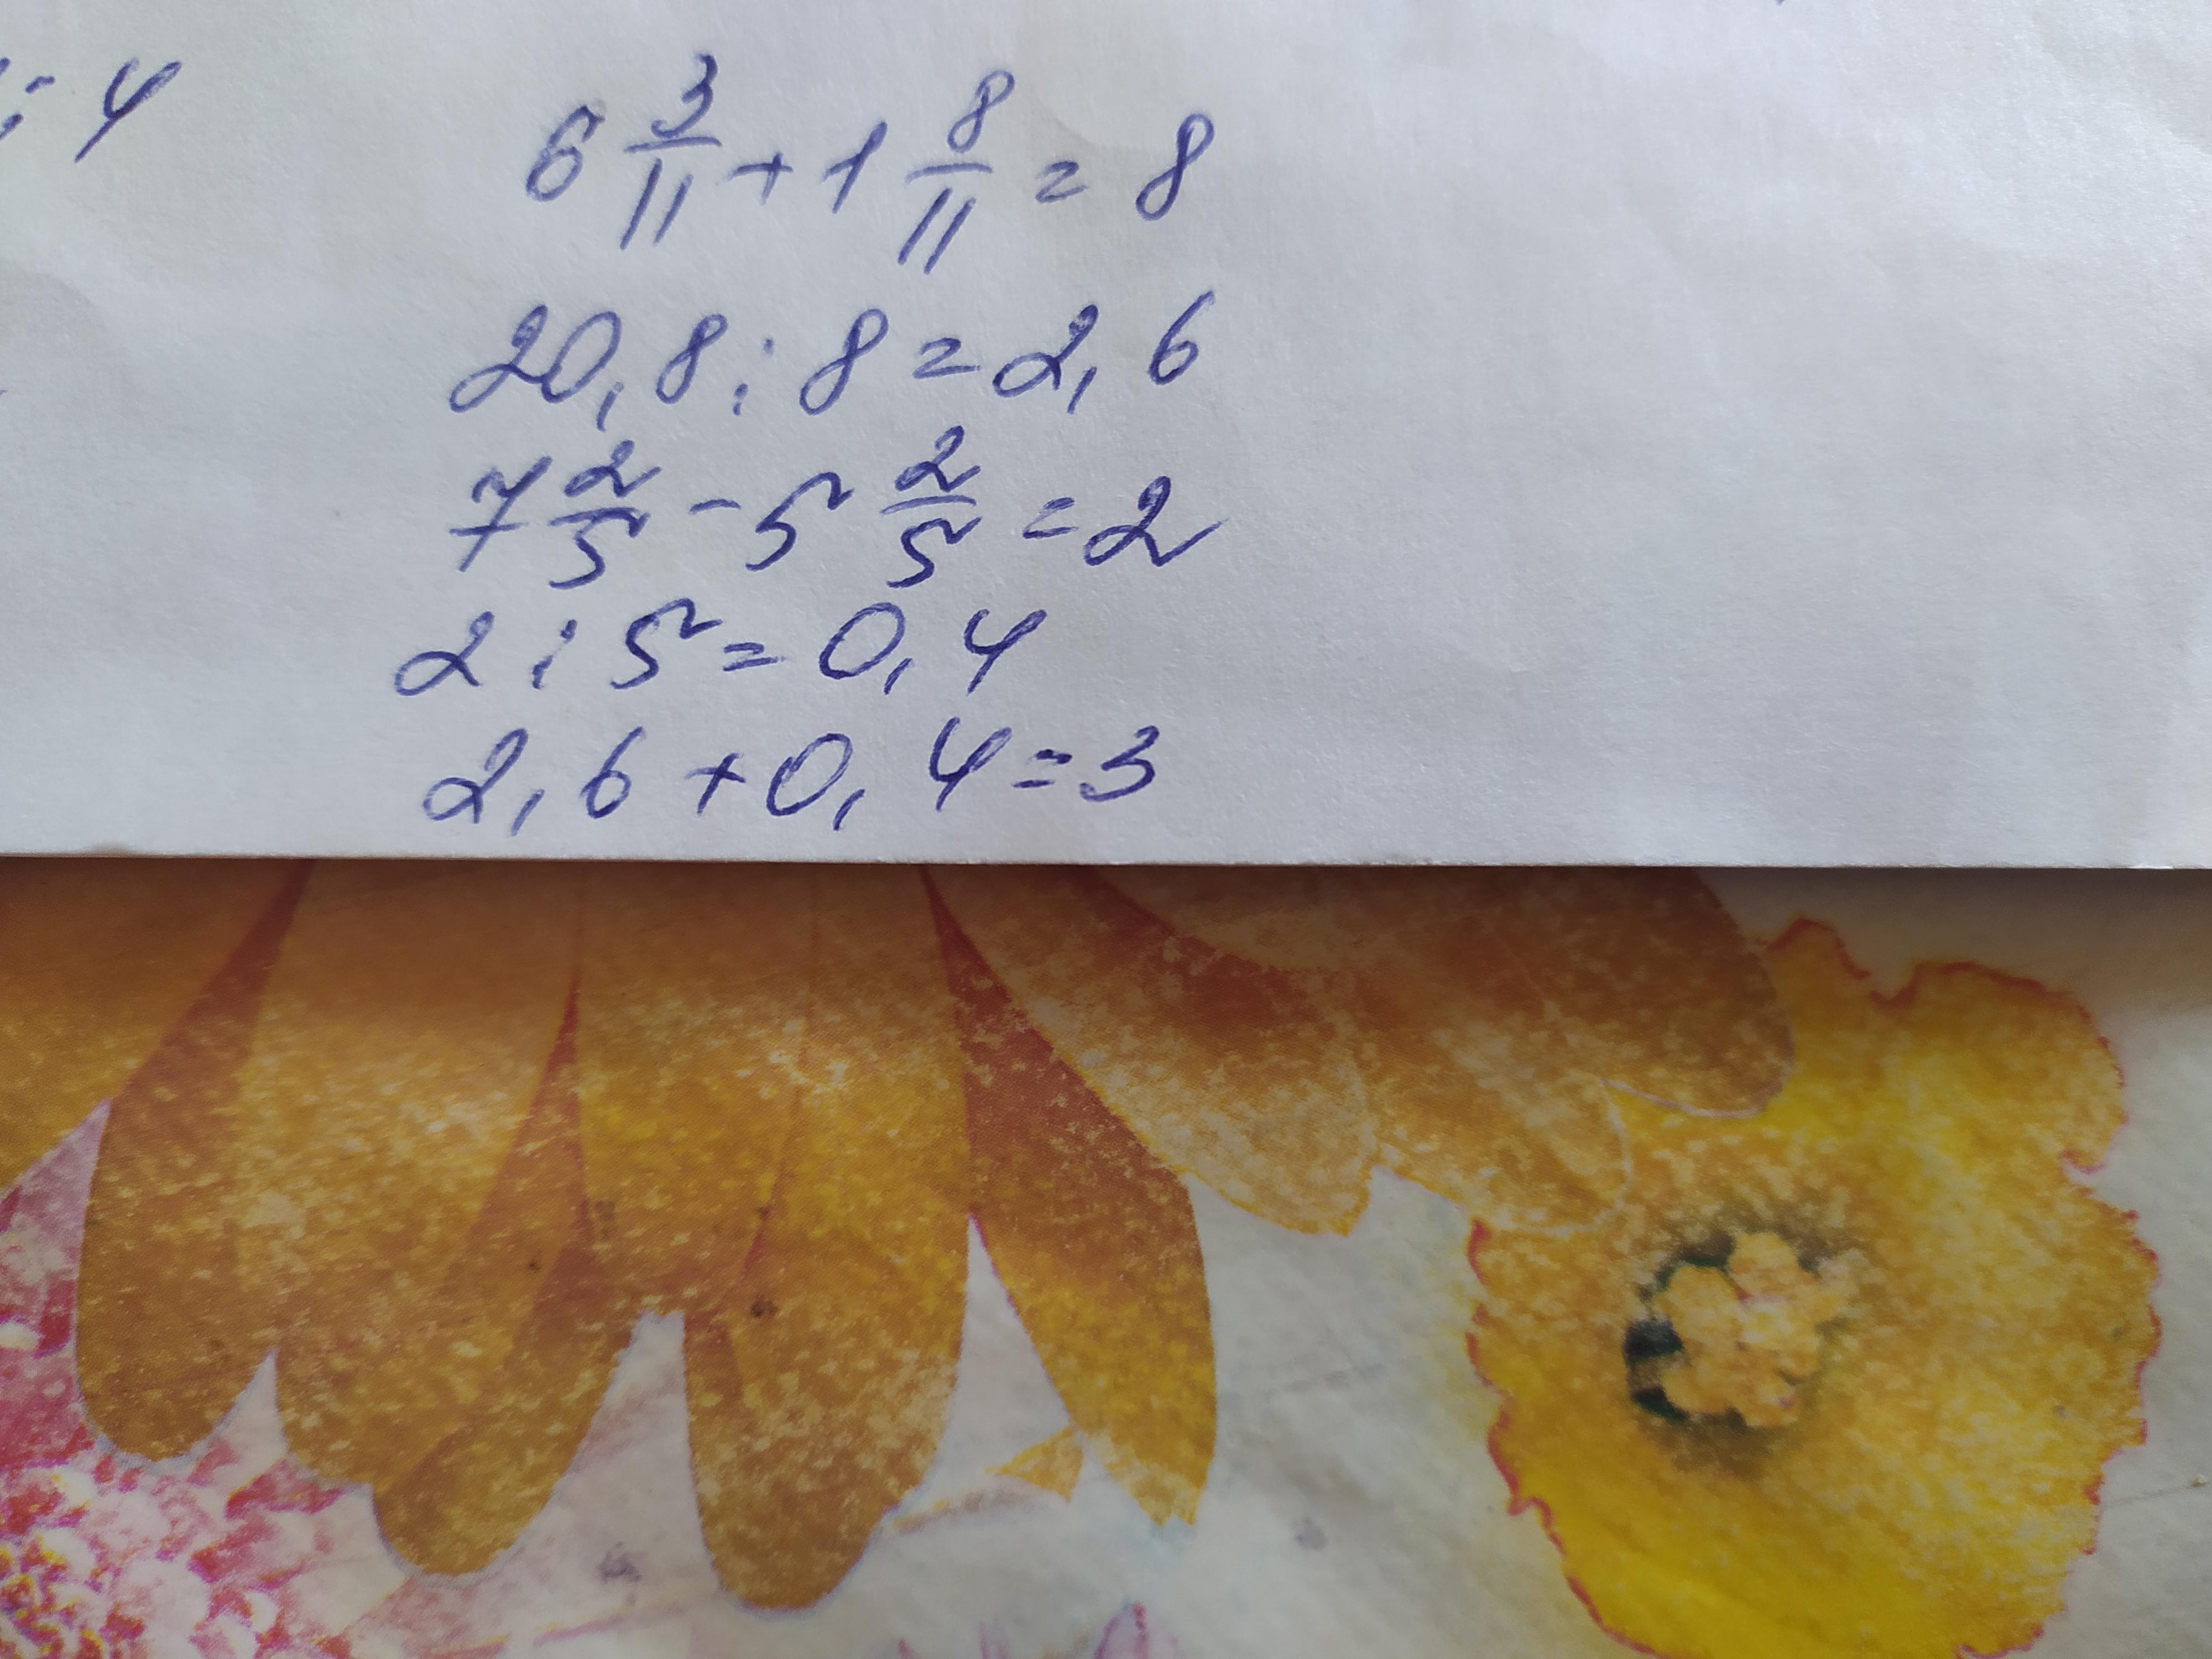 : 4
6 3/11 + 1 8/11 = 8
20,8 : 8 = 2,6
7 2/5 - 5 2/5 = 2
2 : 5 = 0,4
2,6 + 0,4 = 3